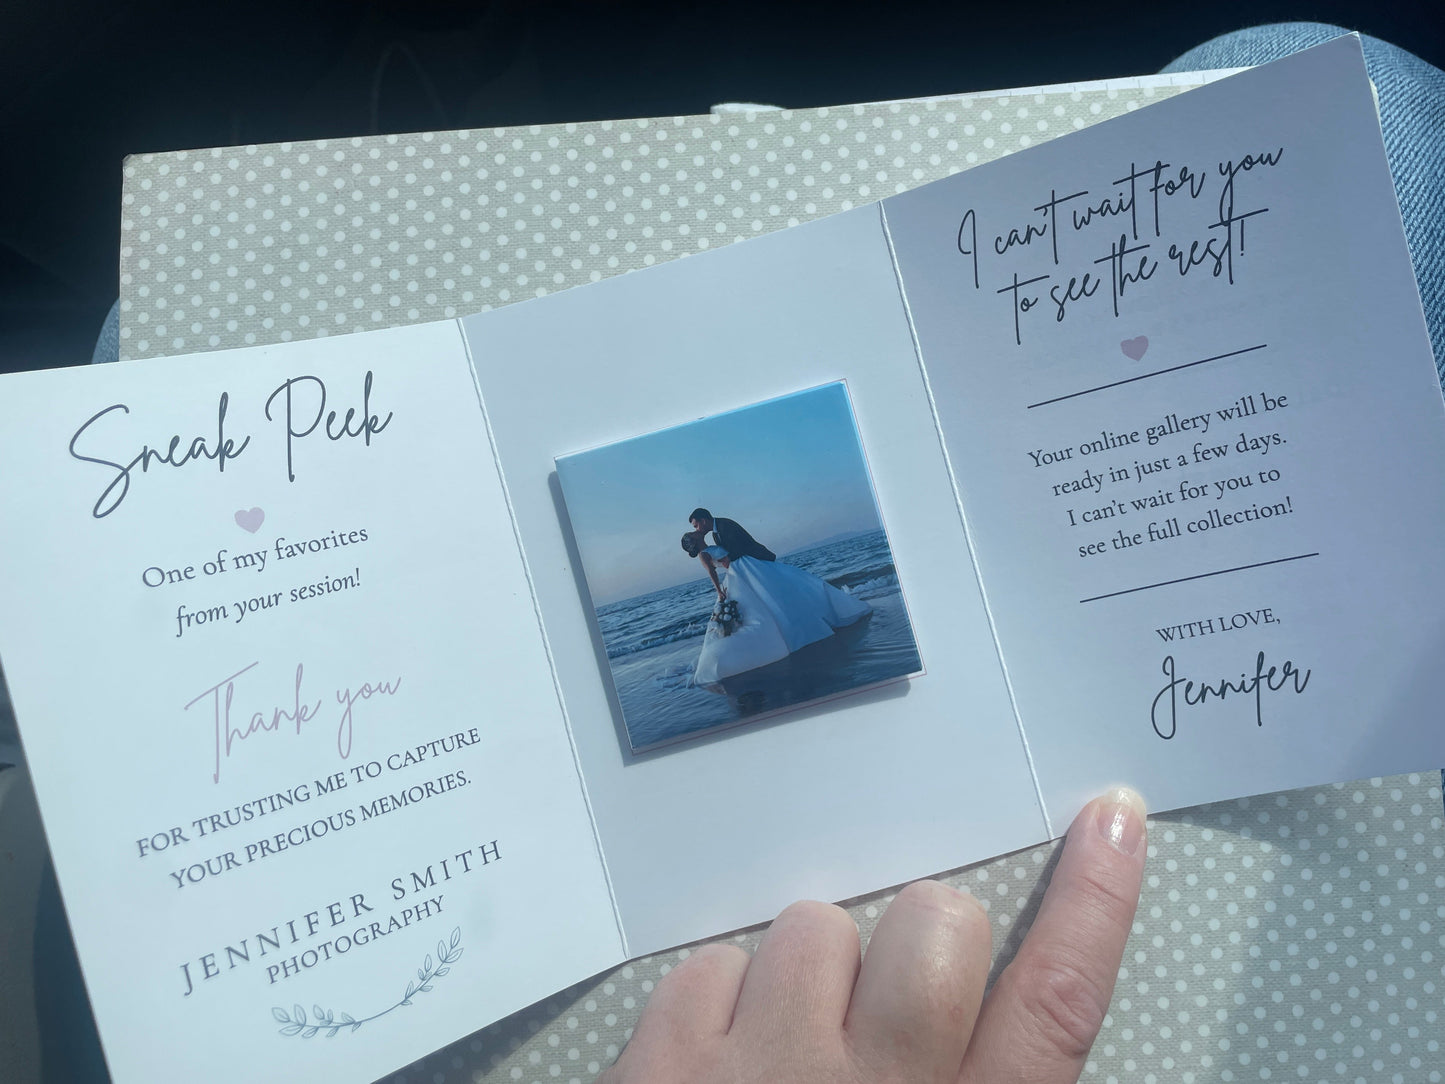 Sneak Peek
One of my favorites
from your session!
Thank you
FOR TRUSTING ME TO CAPTURE
YOUR PRECIOUS MEMORIES.
JENNIFER SMITH
PHOTOGRAPHY
I can't wait for you
to see the rest!
Your online gallery will be
ready in just a few days.
I can't wait for you to
see the full collection!
WITH LOVE,
Jennifer